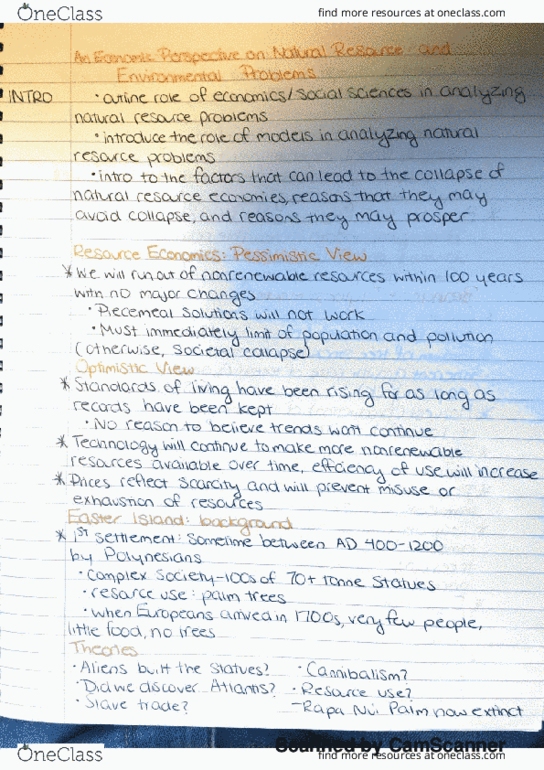 OneClass find more resources at oneclass.com
An Economic Perspective on Natural Resource and
Environmental Problems
INTRO • outline role of economics/social sciences in analyzing
natural resource problems
• introduce the role of models in analyzing natural
resource problems
• intro to the factors that can lead to the collapse of
natural resource economies, reasons that they may
avoid collapse, and reasons they may prosper
Resource Economics: Pessimistic View
* We will run out of nonrenewable resources within 100 years
with no major changes
• Piecemeal solutions will not work
• Must immediately limit of population and pollution
(otherwise, societal collapse)
Optimistic View
* Standards of living have been rising for as long as
records have been kept
• No reason to believe trends wont continue
* Technology will continue to make more nonrenewable
resources available over time, efficiency of use will increase
* Prices reflect scarcity and will prevent misuse or
exhaustion of resources
Easter Island: background
* 1st settlement: Sometime between AD 400-1200
by Polynesians
• Complex Society-100s of 70+ tonne statues
• resource use: palm trees
• when Europeans arrived in 1700s, very few people,
little food, no trees
Theories
• Aliens built the statues? • Cannibalism?
• Did we discover Atlantis? • Resource use?
• Slave trade? -Rapa Nui Palm now extinct
Scanned by CamScanner
OneClass find more resources at oneclass.com